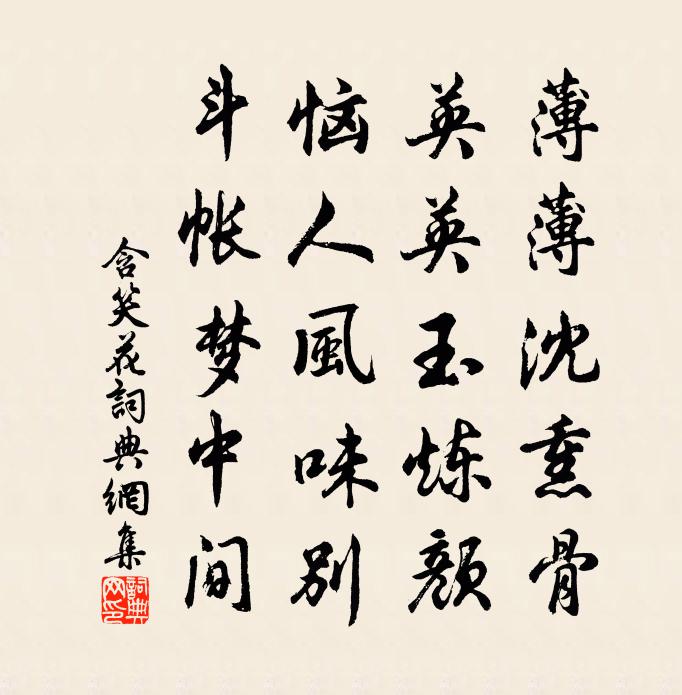 薄薄沈熏骨
英英玉炼顏
恼人風味別
斗帐梦中间
含笑花詞典網集
詞典网印